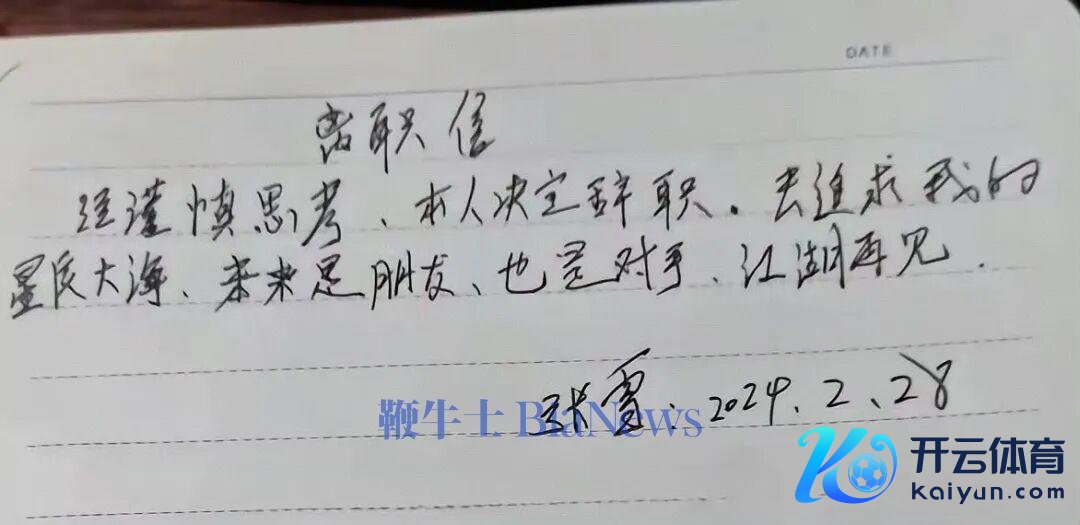 DATE
离职信
经谨慎思考、本人决定辞职。去追求我的
星辰大海、未来是朋友、也是对手、江湖再见.
张雪. 2024.2.28
鞭牛士 BiaNews
开云体育
kaiyun.com